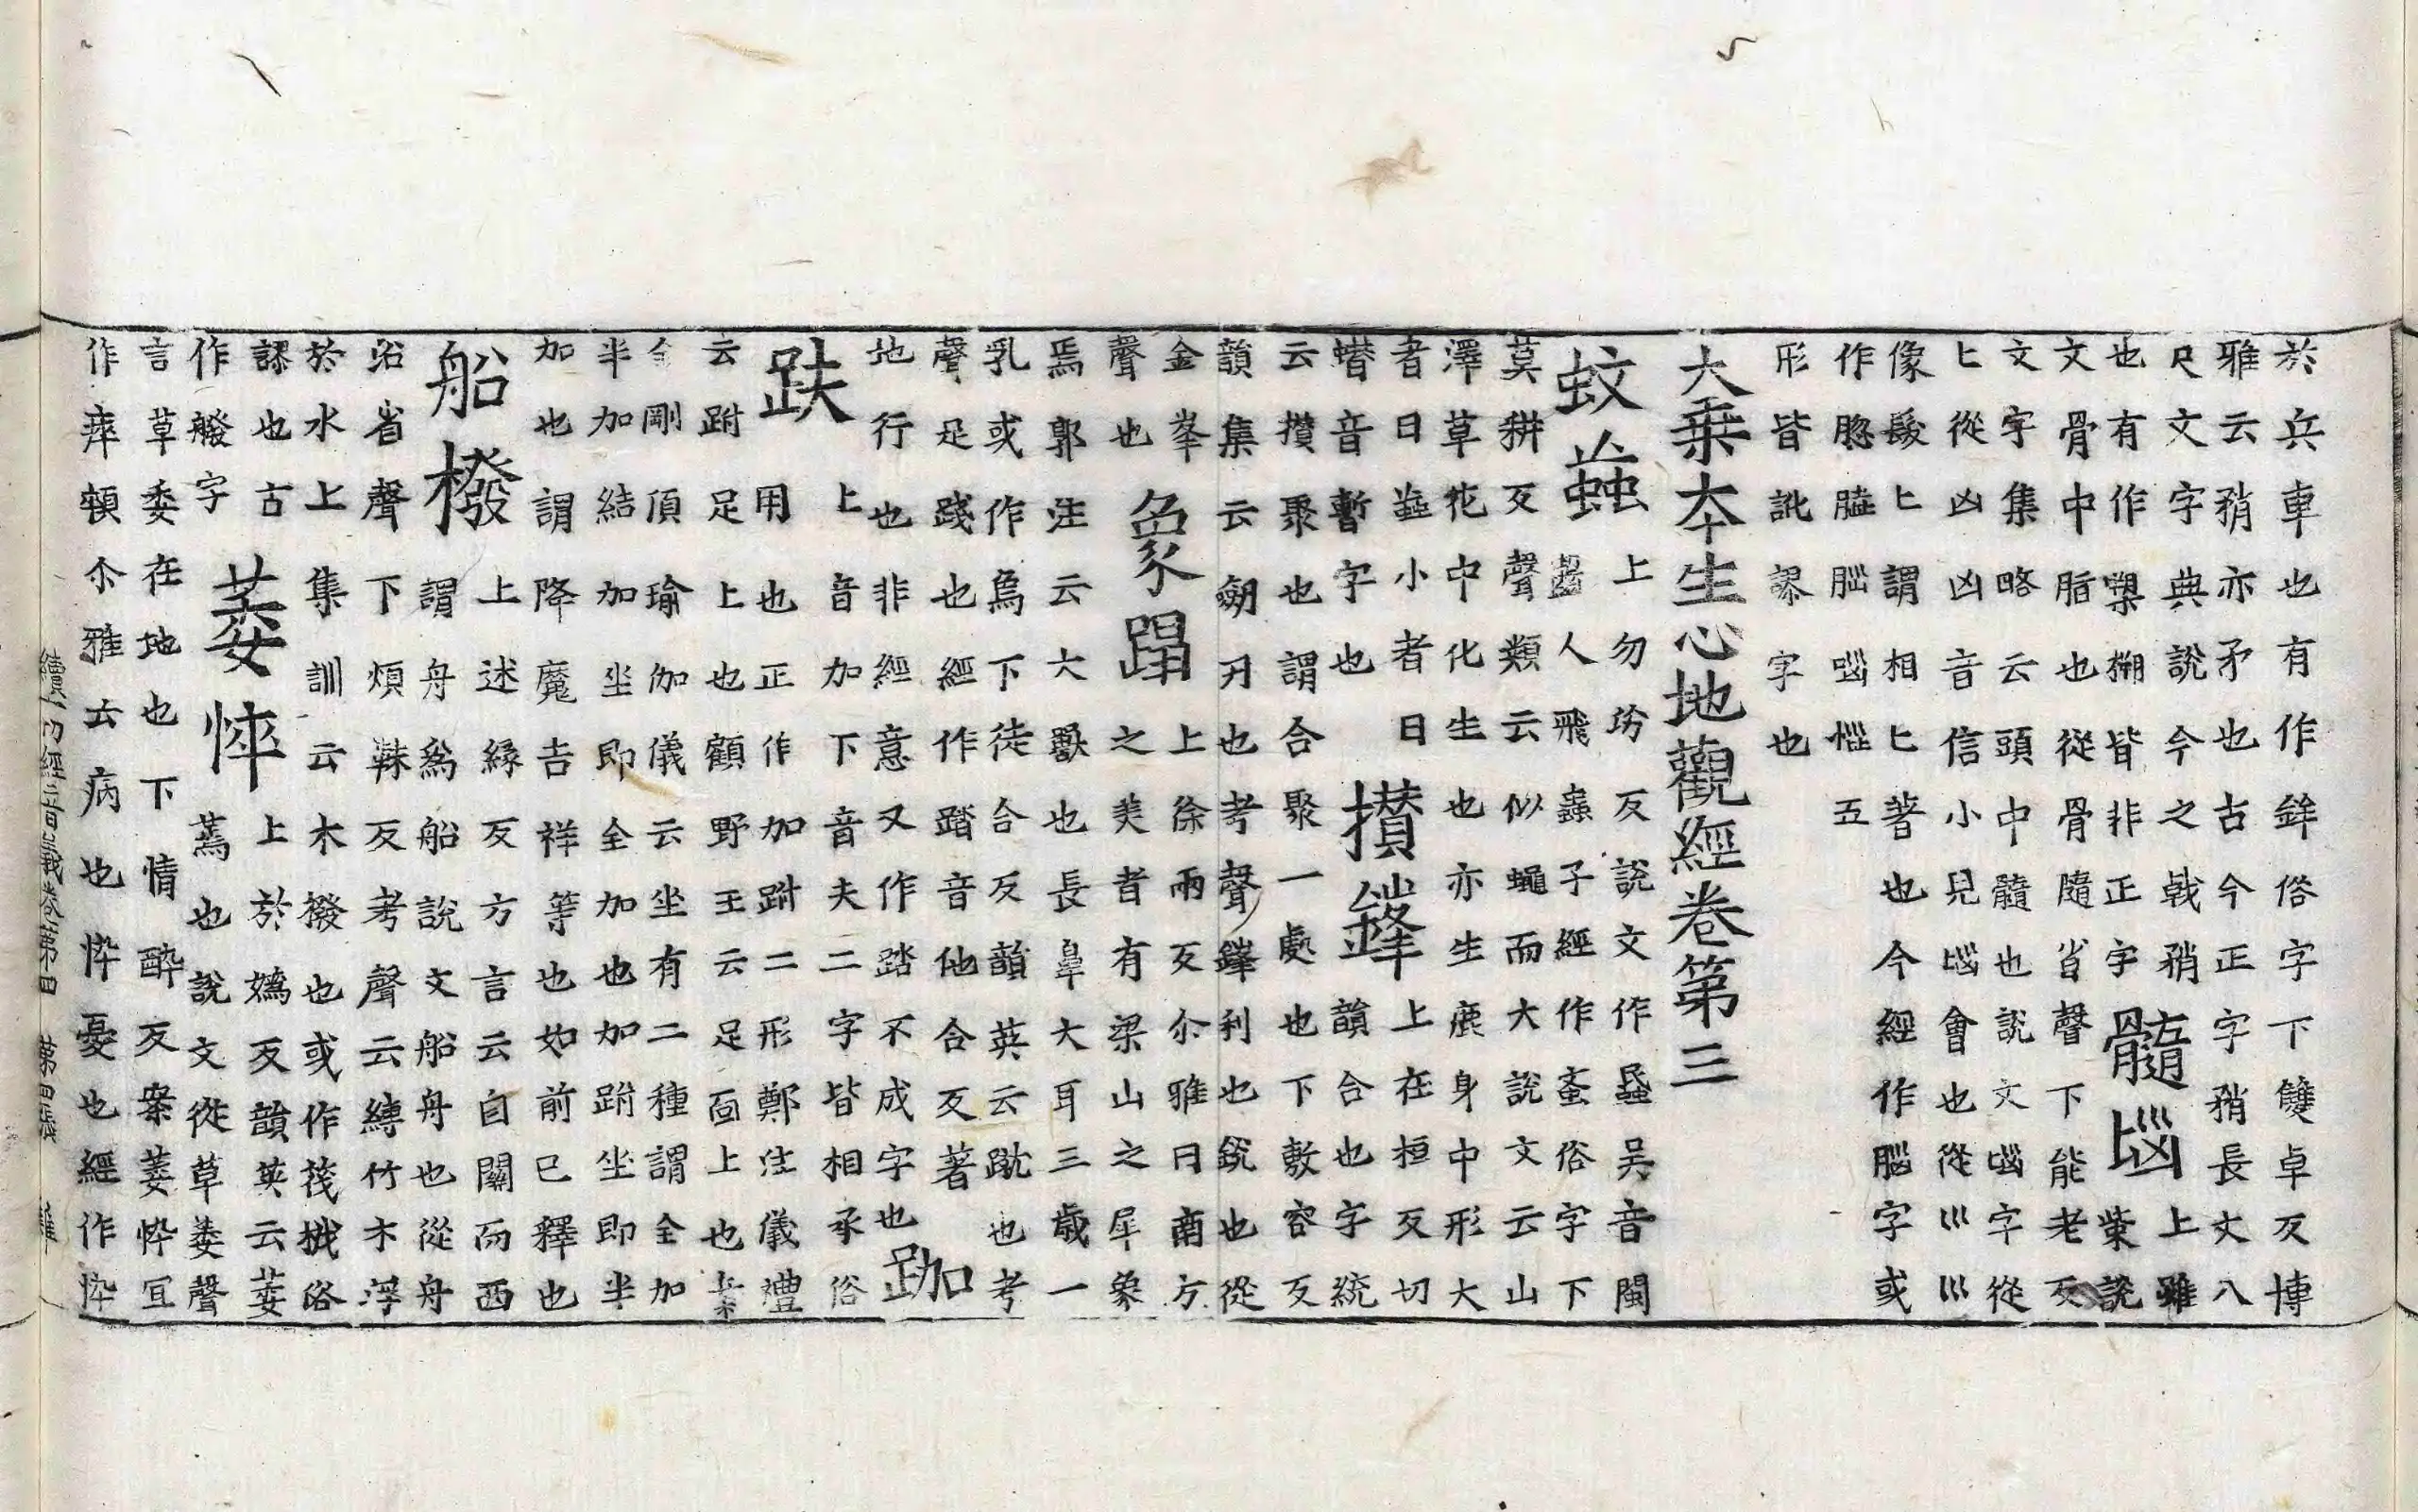 於兵車也有作鉾俗字下雙卓反博
雅云矟亦矛也古今正字矟長丈八
尺文字典說今之戟矟
也有作槊槊皆非正字
髓𡿺
上雖
棠說
文骨中脂也從骨隨省聲下能老反
文字集略云頭中髓也說文𡿺字從
匕從囟囟音信小兒𡿺會也從巛巛
像髮匕謂相匕著也今經作腦字或
作𦛁䐉腦𡿺惱五
形皆訛謬字也
大乗本生心地觀經卷第三
蚊䖟
上勿汾反說文作䘇吴音閩
齧人飛蟲子經作蚉俗字下
莫耕反聲類云似蠅而大說文云山
澤草花中化生也亦生鹿身中形大
者曰䖟小者曰
蠽音蹔字也
攅鋒
上在桓反切
韻合也字統
云攢聚也謂合聚一處也下敷容反
韻集云劒刃也考聲鋒利也銳也從
金夆
聲也
象蹋
上徐兩反尒雅曰南方
之美者有梁山之犀象
焉郭注云大獸也長鼻大耳三歲一
乳或作爲下徒合反韻英云蹴也考
聲足踐也經作踏音他合反著
地行也非經意又作踏不成字也
跏
趺
上音加下音夫二字皆相承俗
用也正作加跗二形鄭注儀禮
云跗足上也顧野王云足面上也案
金剛頂瑜伽儀云坐有二種謂全加
半加結加坐即全加也加跗坐即半
加也謂降魔吉祥等也如前已釋也
船橃
上述緣反方言云自關而西
謂舟爲船說文船舟也從舟
㕣省聲下煩韈反考聲云縛竹木浮
於水上集訓云木撥也或作筏栰俗
謬也古
作橃字
萎悴
上於嬀反韻英云萎
蔫也說文從草萎聲
言草委在地也下情醉反案萎悴宜
作瘁顇尒雅云病也悴憂也經作悴
續一切經音義卷第四　第四張　雞